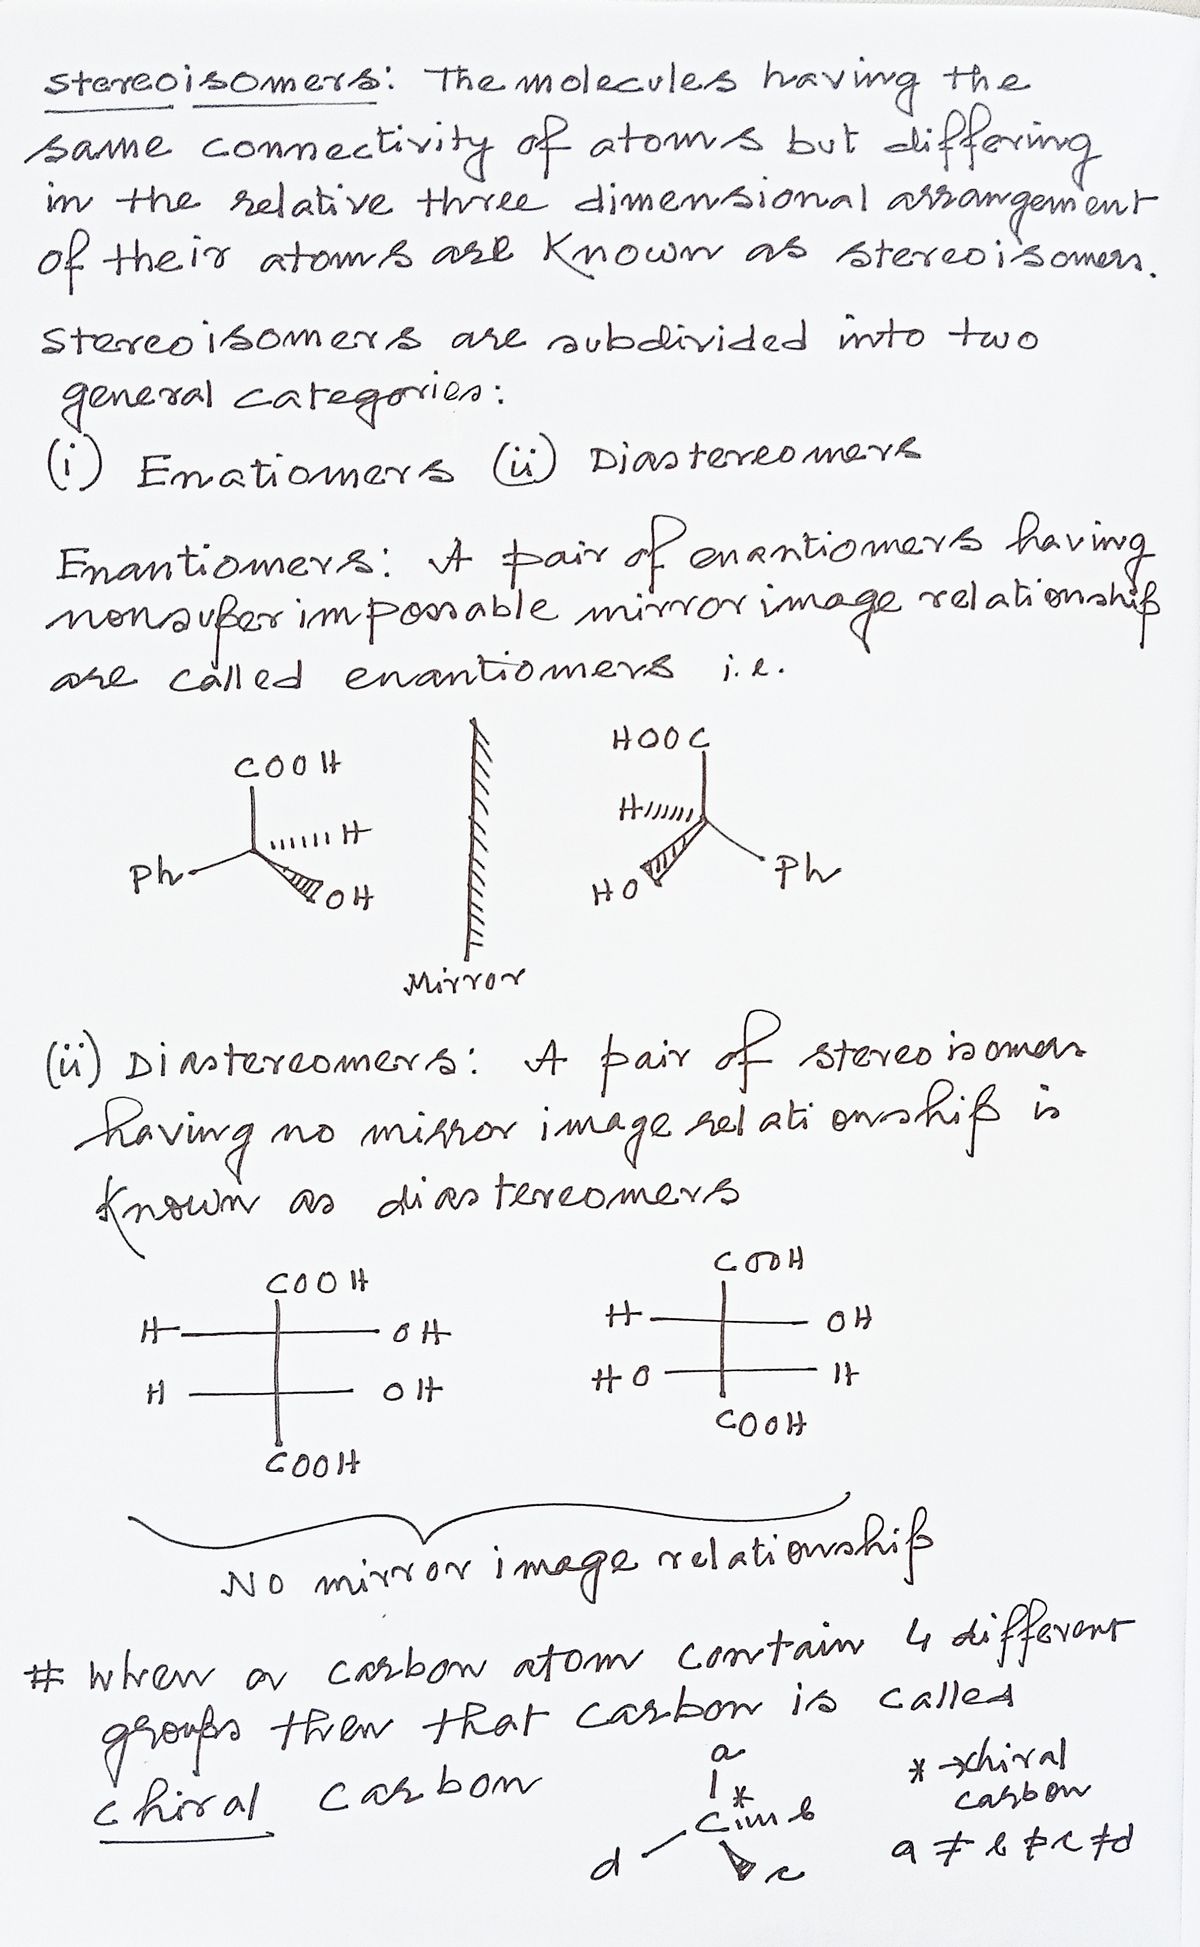 Stereoisomers: The molecules having the
same connectivity of atoms but differing
in the relative three dimensional arrangement
of their atoms are Known as stereoisomers.
Stereoisomers are subdivided into two
general categories:
(i) Enatiomers (ii) Diastereomers
Enantiomers: A pair of enantiomers having
nonsuperimpossable mirror image relationship
are called enantiomers i.e.
COOH
HOOC
H
H
Ph
OH
HO
Ph
Mirror
(ii) Diastereomers: A pair of stereoisomers
having no mirror image relationship is
Known as diastereomers
COOH
COOH
H OH
H OH
H OH
HO H
COOH
COOH
No mirror image relationship
# When a carbon atom contain 4 different
groups then that carbon is called
chiral carbon
a
*
C b
d
c
* → chiral
carbon
a ≠ b ≠ c ≠ d